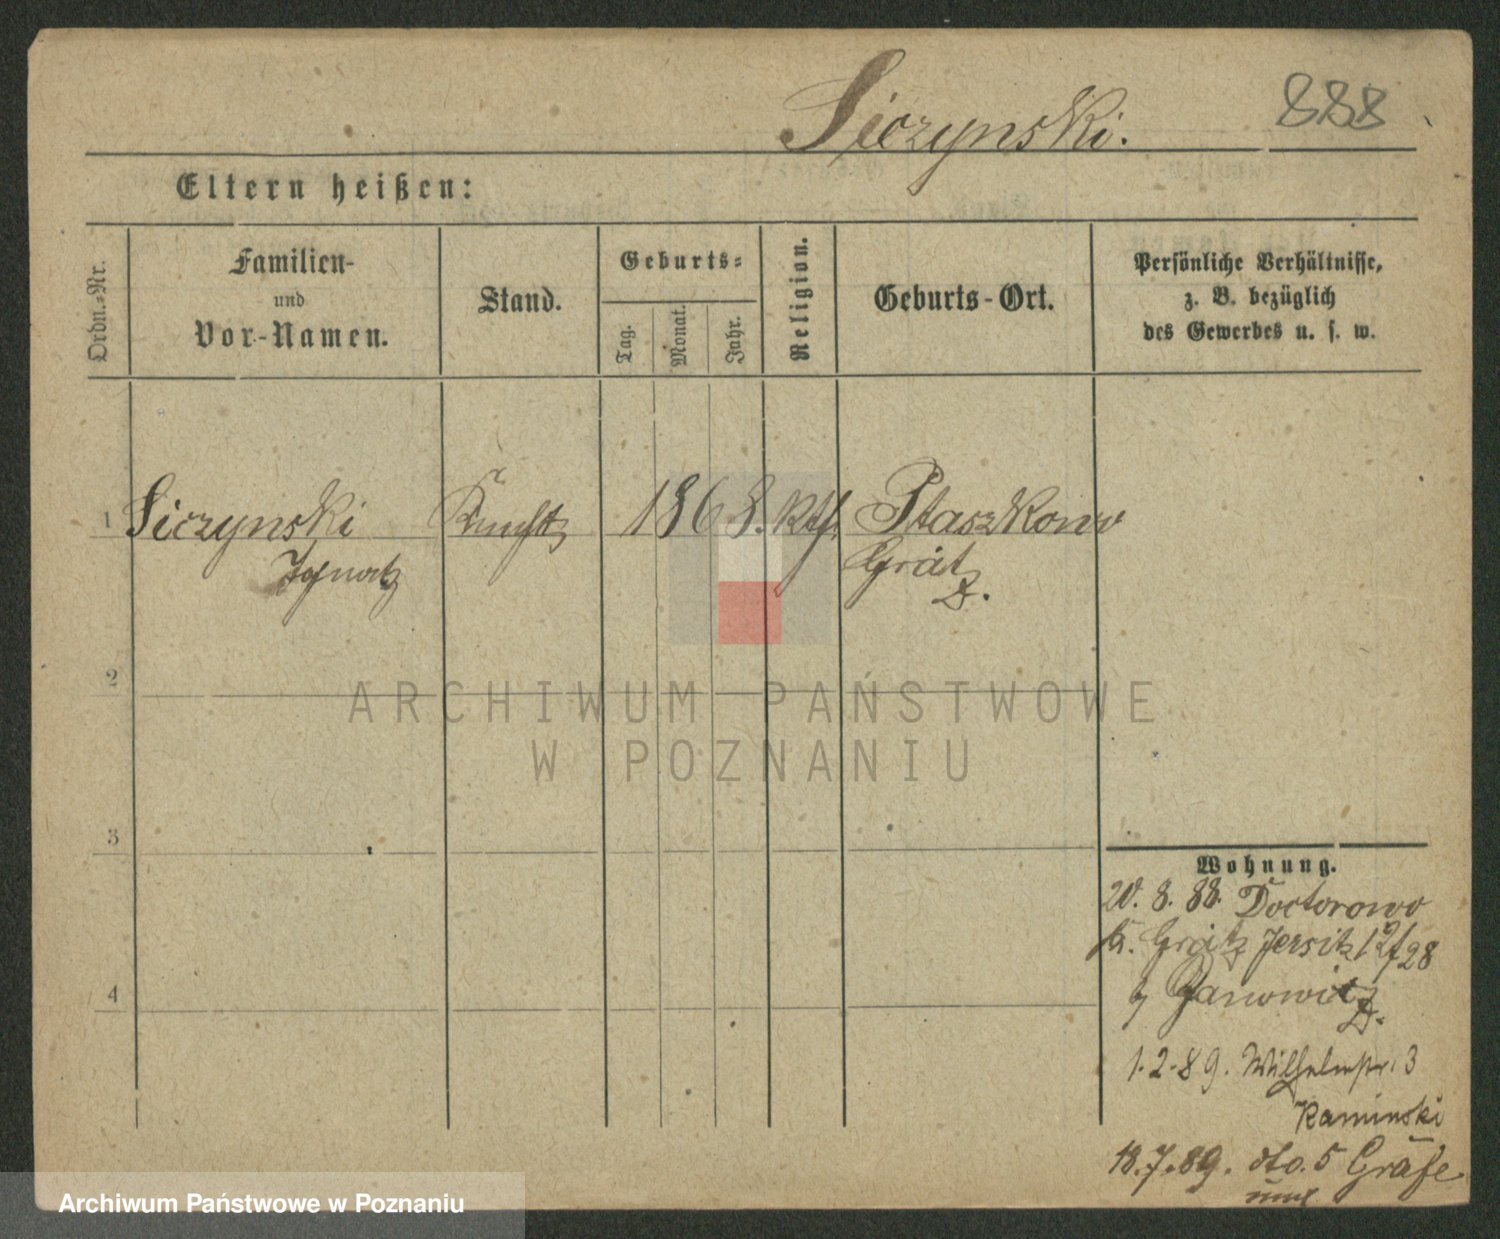 Siczynski. 888
Eltern heißen:
Ordn.-Nr.
Familien-
und
Vor-Namen.
Stand.
Geburts-
Tag.
Monat.
Jahr.
Religion.
Geburts-Ort.
Persönliche Verhältnisse,
z. B. bezüglich
des Gewerbes u. s. w.
1 Siczynski 1868. kth. Ptaszkowo
Ignatz Grätz
2
3
4
Wohnung.
20. 8. 88. Doctorowo
Kr. Grätz Jersitz
Janowitz
1.2.89. Wilhelmstr. 3
Kaminski
18.7.89. dto. 5 Gräfe
ARCHIWUM PAŃSTWOWE
W POZNANIU
Archiwum Państwowe w Poznaniu